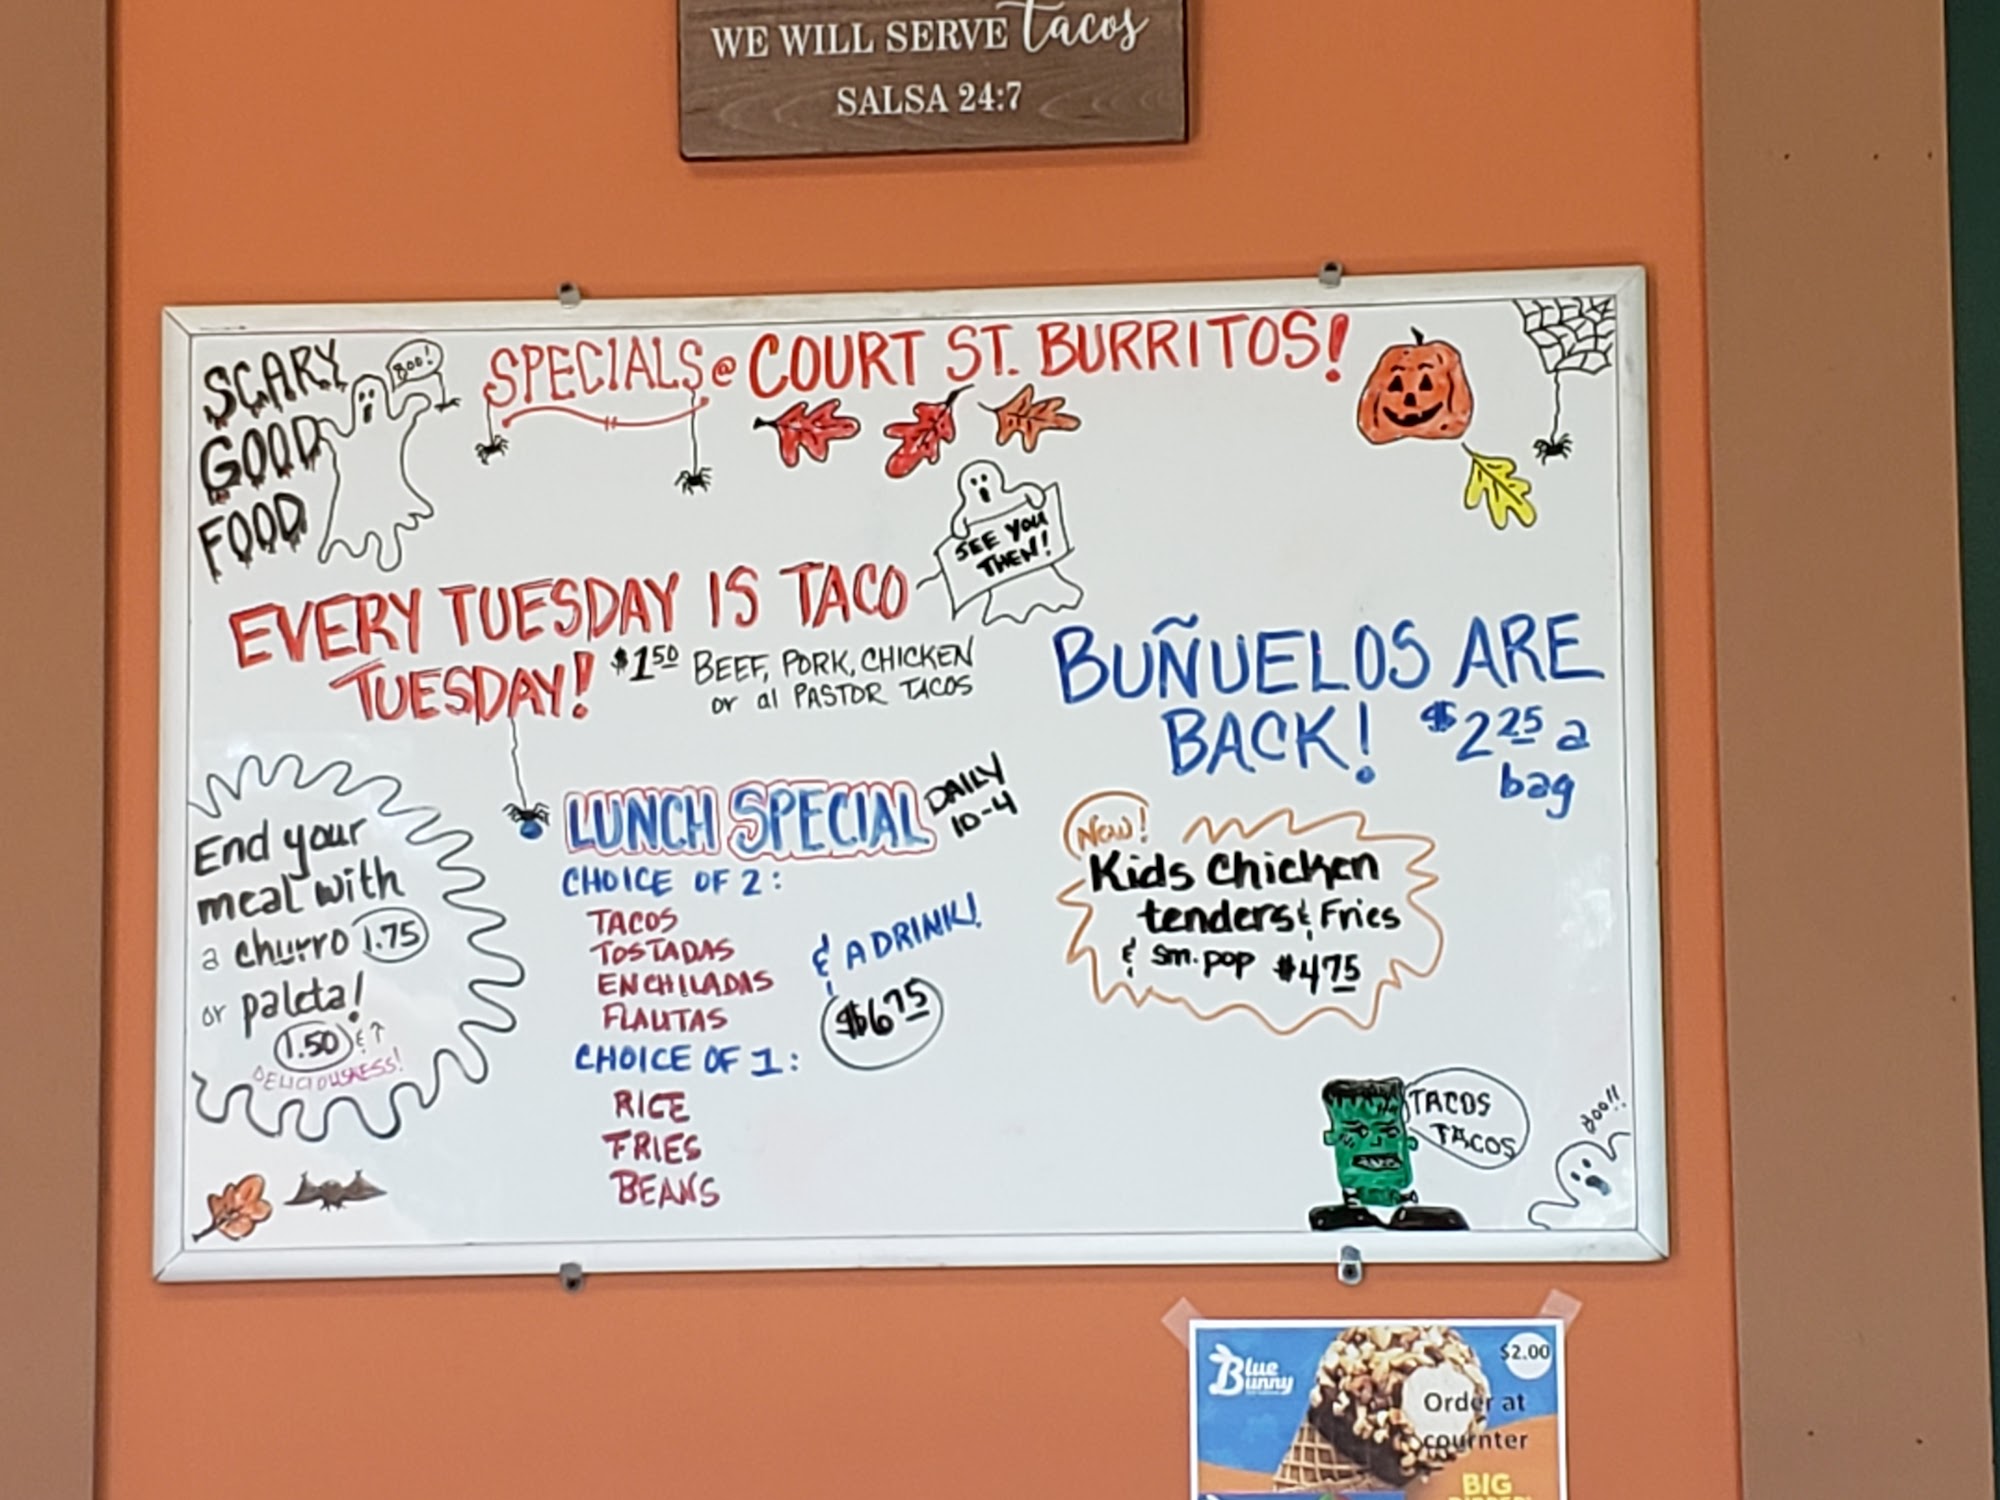 WE WILL SERVE tacos
SALSA 24:7
SCARY
GOOD
FOOD
BOO!
SPECIALS @ COURT ST. BURRITOS!
SEE YOU
THEN!
EVERY TUESDAY IS TACO
TUESDAY!
$1.50 BEEF, PORK, CHICKEN
or al PASTOR TACOS
BUÑUELOS ARE
BACK! $2.25 a
bag
End your
meal with
a churro 1.75
or paleta!
1.50 &
DELICIOUSNESS!
LUNCH SPECIAL
DAILY
10-4
CHOICE OF 2:
TACOS
TOSTADAS
ENCHILADAS
FLAUTAS
& A DRINK!
$6.75
CHOICE OF 1:
RICE
FRIES
BEANS
New!
Kids Chicken
tenders & Fries
& sm. pop $4.75
TACOS
TACOS
BOO!!
Blue
Bunny
$2.00
Order at
cournter
BIG